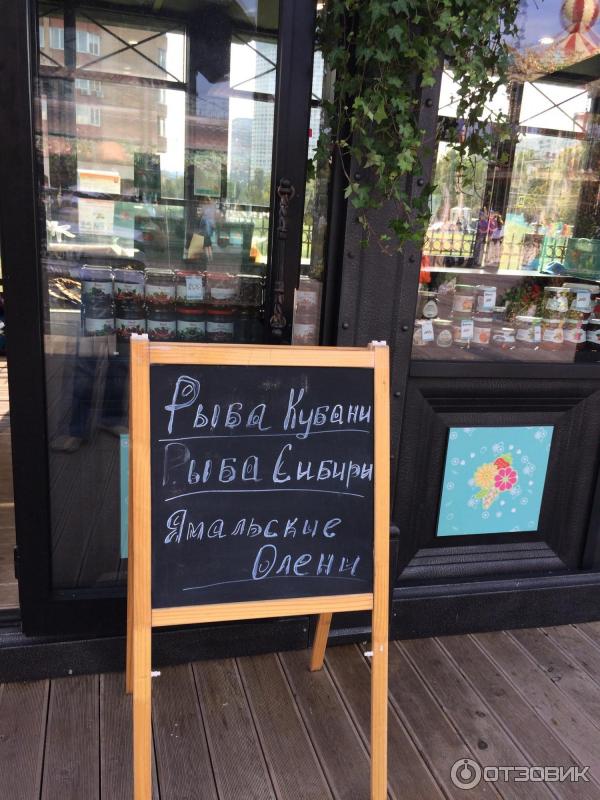 Рыба Кубани
Рыба Сибири
Ямальские
Олени
ОТЗОВИК